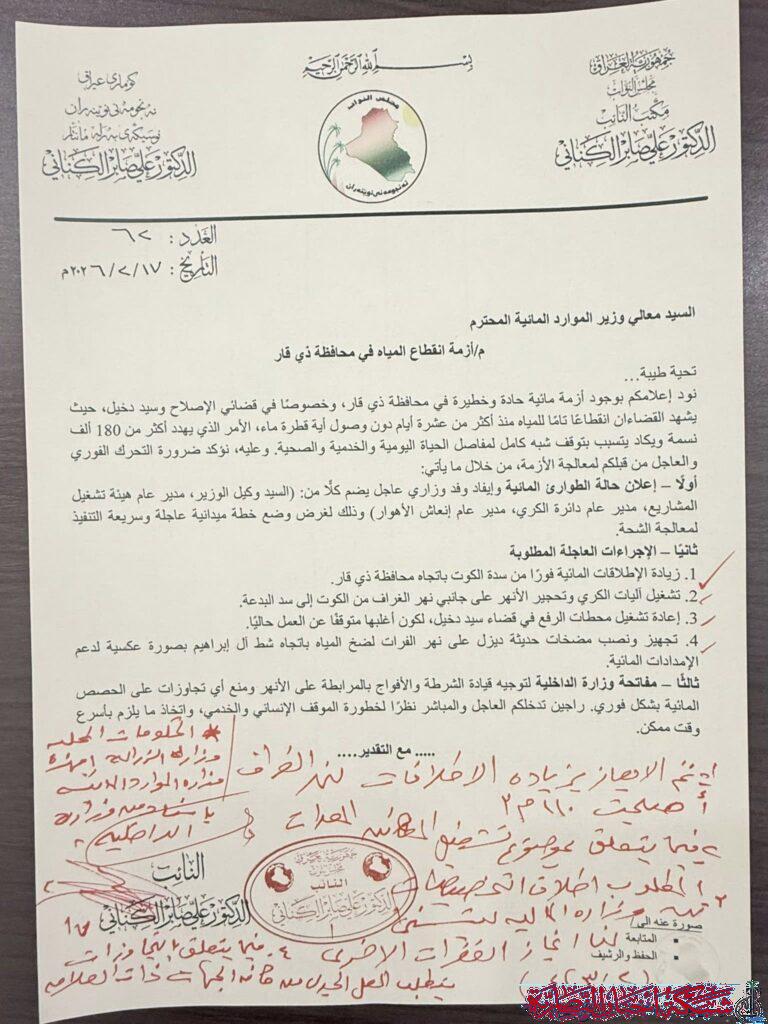 بسم الله الرحمن الرحيم
جمهورية العراق
مجلس النواب
مكتب النائب
الدكتور علي صابر الكناني
كۆماری عیراق
ئەنجومەنی نوێنەران
الدكتور علي صابر الكناني
مجلس النواب
ئەنجومەنی نوێنەران
العدد: ٦٢
التاريخ: ٢٠٢٦/٢/١٧م
السيد معالي وزير الموارد المائية المحترم
م/أزمة انقطاع المياه في محافظة ذي قار
تحية طيبة...
نود إعلامكم بوجود أزمة مائية حادة وخطيرة في محافظة ذي قار، وخصوصًا في قضائي الإصلاح وسيد دخيل، حيث
يشهد القضاءان انقطاعًا تامًا للمياه منذ أكثر من عشرة أيام دون وصول أية قطرة ماء، الأمر الذي يهدد أكثر من 180 ألف
نسمة ويكاد يتسبب بتوقف شبه كامل لمفاصل الحياة اليومية والخدمية والصحية. وعليه، نؤكد ضرورة التحرك الفوري
والعاجل من قبلكم لمعالجة الأزمة، من خلال ما يأتي:
أولًا – إعلان حالة الطوارئ المائية وإيفاد وفد وزاري عاجل يضم كلًا من: (السيد وكيل الوزير، مدير عام هيئة تشغيل
المشاريع، مدير عام دائرة الكري، مدير عام إنعاش الأهوار) وذلك لغرض وضع خطة ميدانية عاجلة وسريعة التنفيذ
لمعالجة الشحة.
ثانيًا – الإجراءات العاجلة المطلوبة
1. زيادة الإطلاقات المائية فورًا من سدة الكوت باتجاه محافظة ذي قار.
2. تشغيل آليات الكري وتحجير الأنهر على جانبي نهر الغراف من الكوت إلى سد البدعة.
3. إعادة تشغيل محطات الرفع في قضاء سيد دخيل، لكون أغلبها متوقفًا عن العمل حاليًا.
4. تجهيز ونصب مضخات حديثة ديزل على نهر الفرات لضخ المياه باتجاه شط آل إبراهيم بصورة عكسية لدعم
الإمدادات المائية.
ثالثًا – مفاتحة وزارة الداخلية لتوجيه قيادة الشرطة والأفواج بالمرابطة على الأنهر ومنع أي تجاوزات على الحصص
المائية بشكل فوري. راجين تدخلكم العاجل والمباشر نظرًا لخطورة الموقف الإنساني والخدمي، واتخاذ ما يلزم بأسرع
وقت ممكن.
..... مع التقدير....
الحكومات المحلية
وزارة الزراعة
وزارة الموارد المائية
وزارة
الداخلية
تم الايعاز بزيادة الاطلاقات لنهر الغراف
اصبحت ١١٠ م٣
فيما يتعلق بموضوع تشغيل
المطلوب اطلاق التخصيصات
وزارة المالية
لنا انجاز الفقرات الاخرى
٤. فيما يتعلق بالتجاوزات
يتطلب العمل من كافة الجهات ذات العلاقة
النائب
الدكتور علي صابر الكناني
جمهورية العراق
مجلس النواب
النائب
الدكتور علي صابر الكناني
صورة عنه الى/
المتابعة
الحفظ والرشيف
شبكة اخبار الناصرية